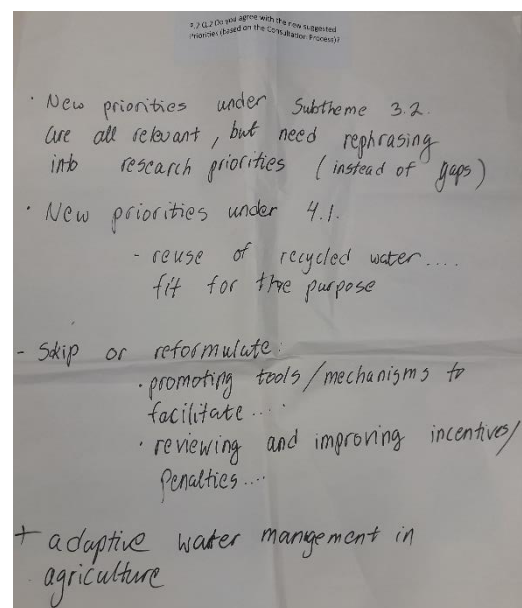 Do you agree with the new suggested
Priorities (based on the Consultation Process)?
· New priorities under Subtheme 3.2.
are all relevant, but need rephrasing
into research priorities (instead of gaps)
· New priorities under 4.1.
- reuse of recycled water....
fit for the purpose
- Skip or reformulate:
· promoting tools/mechanisms to
facilitate....
· reviewing and improving incentives/
Penalties....
+ adaptive water mangement in
agriculture